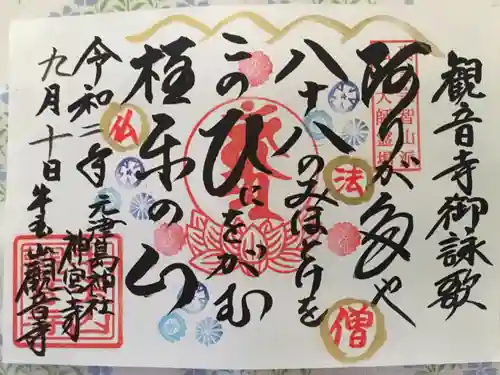 観音寺御詠歌
阿りが多や
八十八のみほとけを
このひにをがむ
極楽の山
令和二年
九月十日
元津島神社
神宮寺
牛玉山觀音寺
仏
法
僧